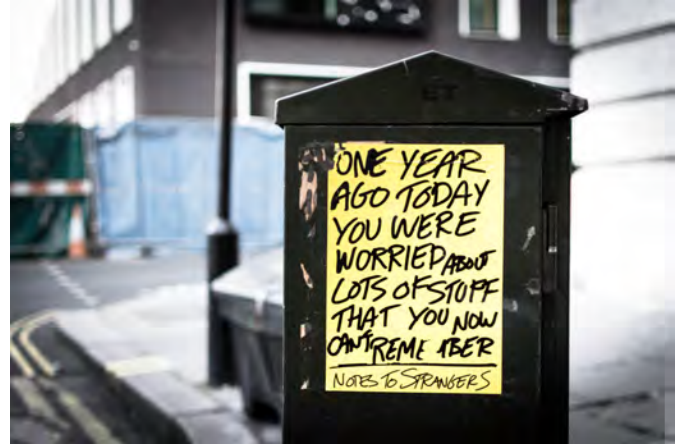 ONE YEAR
AGO TODAY
YOU WERE
WORRIED ABOUT
LOTS OF STUFF
THAT YOU NOW
CAN'T REME BER
NOTES TO STRANGERS